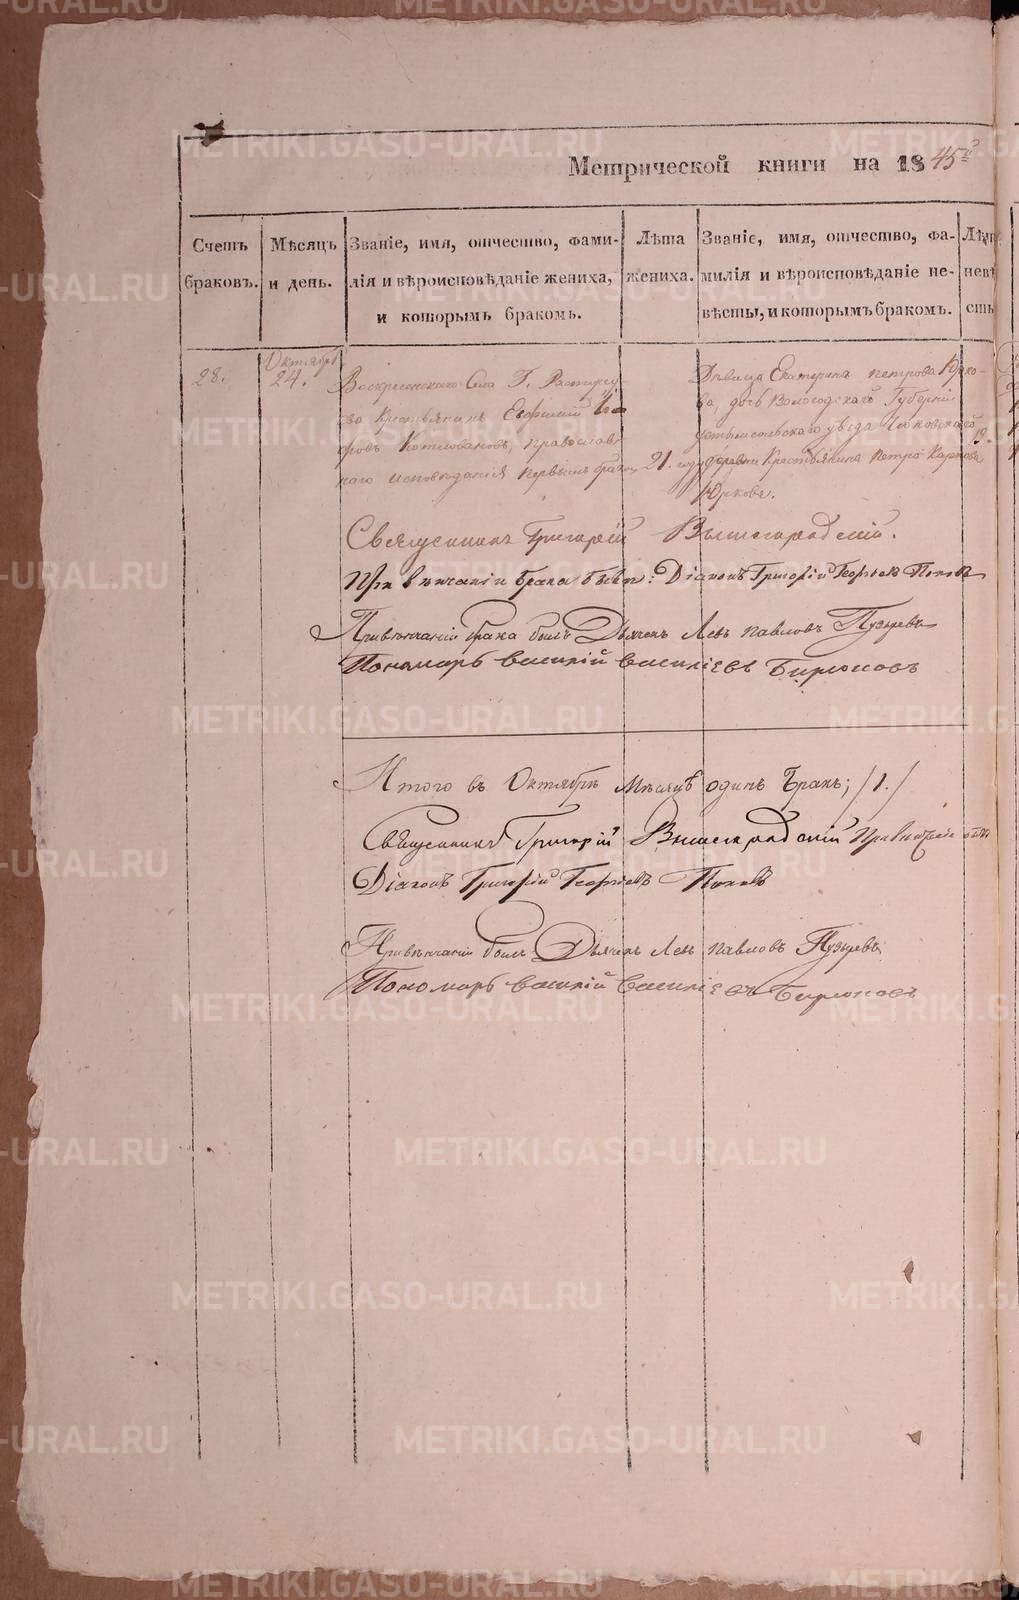 Метрической книги на 1845го
Счетъ браковъ.
Мѣсяцъ и день.
Званіе, имя, отчество, фамилія и вѣроисповѣданіе жениха, и которымъ бракомъ.
Лѣта жениха.
Званіе, имя, отчество, фамилія и вѣроисповѣданіе невѣсты, и которымъ бракомъ.
Лѣт невѣ сты
28.
Октябрь
24.
Воскресенскаго Села Г.
ва Крестьянинъ Евфимий
ровъ православ
наго исповѣданія первымъ брако
21. году
Дѣвица Екатерина петрова Юрко-
ва, дочь Вологодскаго Губерніи
устьсысольскаго уѣзда
деревни Крестьянина Петра Карпова
Юркова.
19.
Священникъ Григорій Вышегородскій.
При вѣнчаніи брака былъ: Діаконъ Григорій Георгіевъ Поповъ
При вѣнчаніи брака былъ Дьячекъ Левъ павловъ Пузыревъ
Пономарь Василій Василіевъ Бирюковъ
Итого въ Октябрѣ Мѣсяцѣ одинъ Бракъ; /1./
Священникъ Григорій Вышегородскій
Діаконъ Григорій Георгіевъ Поповъ
При вѣнчаніи былъ Дьячекъ Левъ павловъ Пузыревъ
Пономарь Василій Василіевъ Бирюковъ
METRIKI.GASO-URAL.RU